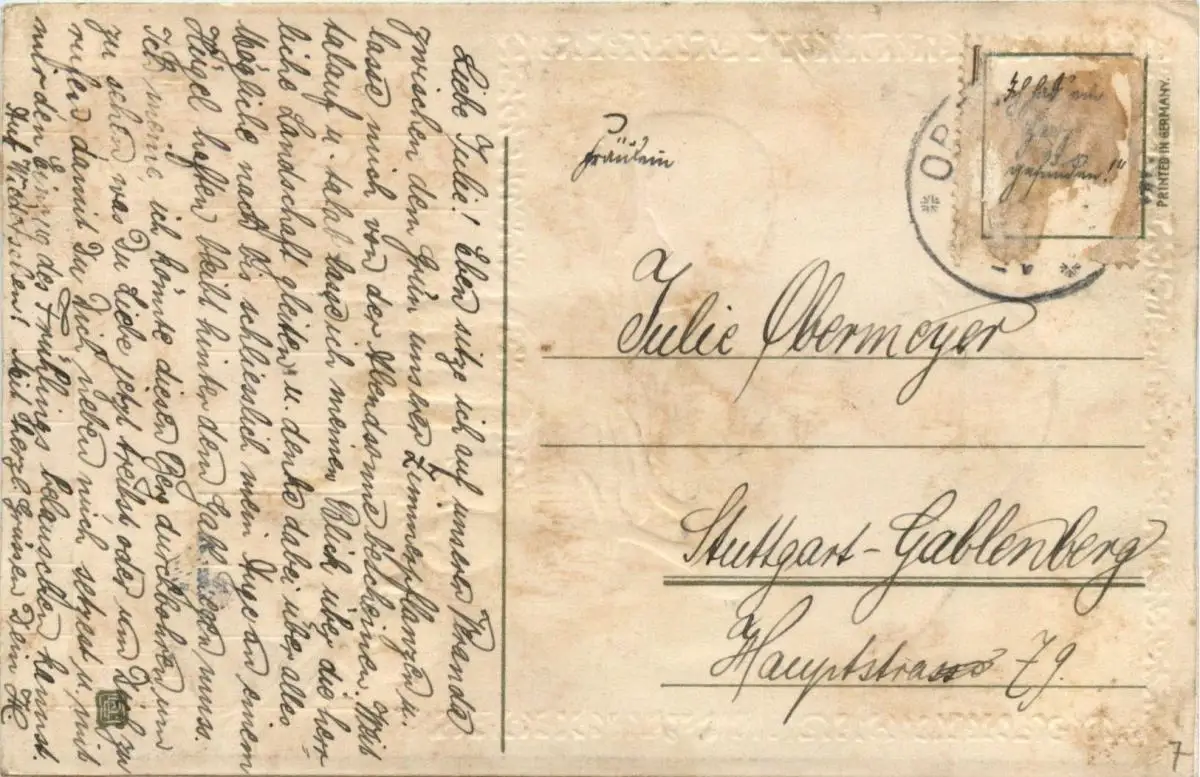 Liebe Julie! Eben sitze ich auf unserer Veranda
zwischen dem Grün unserer Zimmerpflanzen u.
lasse mich von der Abendsonne bescheinen. Weit
talauf u. talab lasse ich meinen Blick über die herr-
liche Landschaft gleiten u. denke dabei über alles
Mögliche nach bis schliesslich mein Auge an einem
Hügel haften bleibt hinter dem Gablenberg
Ich meine ich könnte diesen Berg durchbohren um
zu sehen was Du Liebe jetzt treibst oder um Dir zu-
rufen damit Du Dich neben mich setzest u. mit
mir den Einzug des Frühlings belauschen kannst.
Auf Wiedersehen! Mit herzl. Grüssen Dein H
Fräulein
Julie Obermeyer
Stuttgart-Gablenberg
Hauptstrasse 79.
gefunden!"
OB
PRINTED IN GERMANY.
7